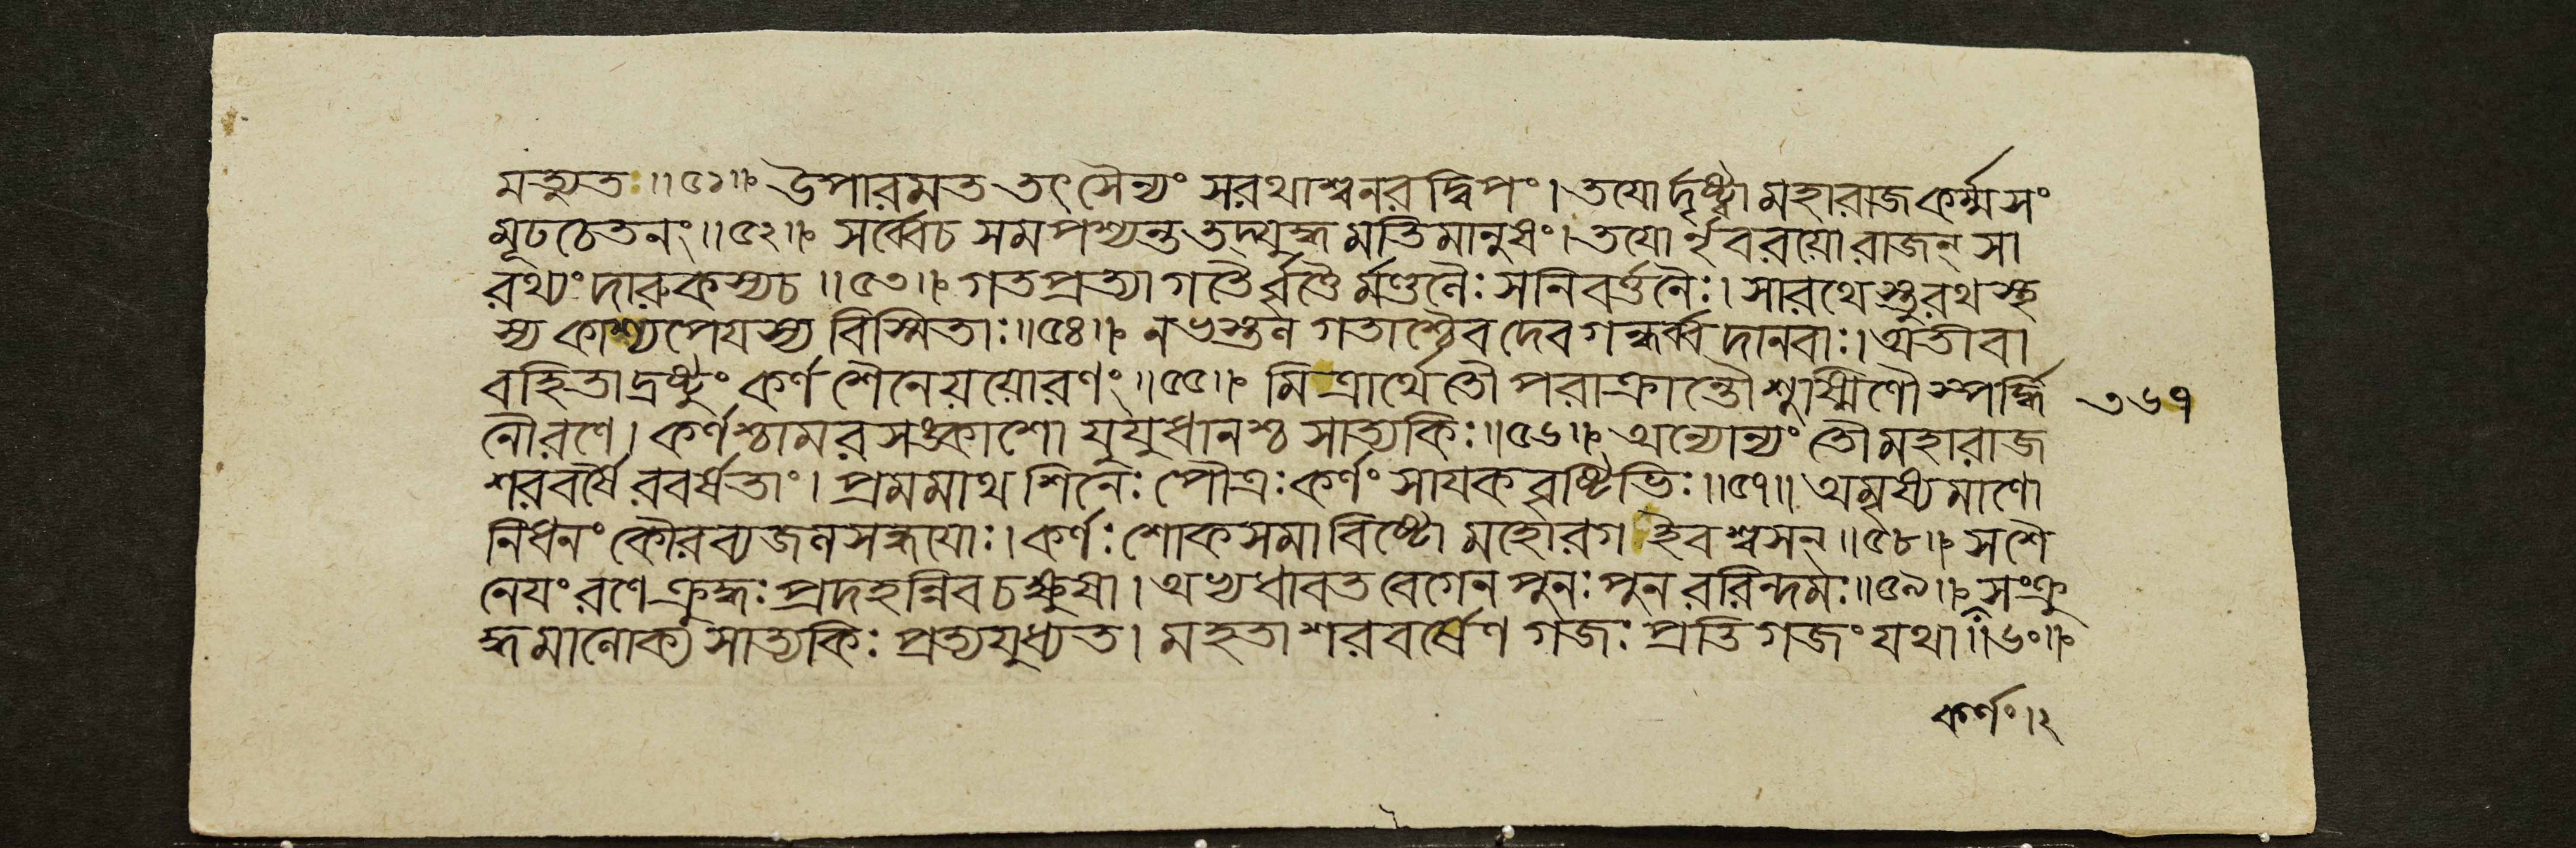 মচ্যুত॥৫১॥ উপারমত তৎ সৈন্যং সরথাশ্বনরদ্বিপং। তয়োর্দৃষ্ট্বা মহারাজ কর্ম্ম সং
মূঢচেতনং॥৫২॥ সর্ব্বেচ সমপশ্যন্ত তদ্যুদ্ধমতিমানুষং। তয়োর্নৃবরয়োরাজন্ সা
রথ্যং দারুকস্যচ॥৫৩॥ গতপ্রত্যাগতৈর্বৃত্তৈর্মণ্ডলৈঃ সনিবর্ত্তনৈঃ। সারথেস্তু রথস্থ
স্য কাশ্যপেয়স্য বিস্মিতাঃ॥৫৪॥ নভস্তল গতাশ্চৈব দেবগন্ধর্ব্ব দানবাঃ। অতীবা
বহিতা দ্রষ্টুং কর্ণ শৈনেয়য়োরণং॥৫৫॥ মিত্রার্থে তৌ পরাক্রান্তৌ শুষ্মিণৌ স্পর্দ্ধি
নৌ রণে। কর্ণশ্চামরসঙ্কাশো যুযুধানশ্চ সাত্যকিঃ॥৫৬॥ অন্যোন্যং তৌ মহারাজ
শরবর্ষৈরবর্ষতাং। প্রমমাথ শিনেঃ পৌত্রঃ কর্ণং সায়কবৃষ্টিভিঃ॥৫৭॥ অমৃষ্যমাণো
নিধনং কৌরব্যজলসন্ধয়োঃ। কর্ণঃ শোকসমাবিষ্টো মহোরগ ইবশ্বসন্॥৫৮॥ স শৈ
নেয়ং রণে ক্রুদ্ধঃ প্রদহন্নিবচক্ষুষা। অভ্যধাবত বেগেন পুনঃ পুনররিন্দমঃ॥৫৯॥ সংক্রু
দ্ধমালোক্য সাত্যকিঃ প্রত্যযুধ্যত। মহতা শরবর্ষেণ গজঃ প্রতি গজং যথা॥৬০॥
৩৬৭
কর্ণ০।২